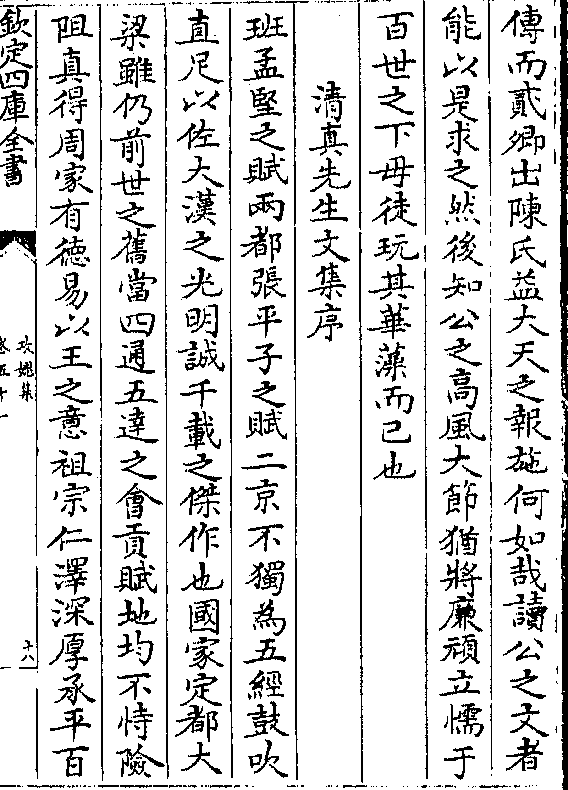 傳而貳卿出陳氏益大天之報施何如哉讀公之文者
能以是求之然後知公之高風大節猶將廉頑立懦于
百世之下毋徒玩其華藻而已也
清真先生文集序
班孟堅之賦兩都張平子之賦二京不獨為五經鼓吹
直足以佐大漢之光明誠千載之傑作也國家定都大
梁雖仍前世之舊當四通五達之會貢賦地均不恃險
阻真得周家有德易以王之意祖宗仁澤深厚承平百
欽定四庫全書
攻媿集
卷五十一
十八